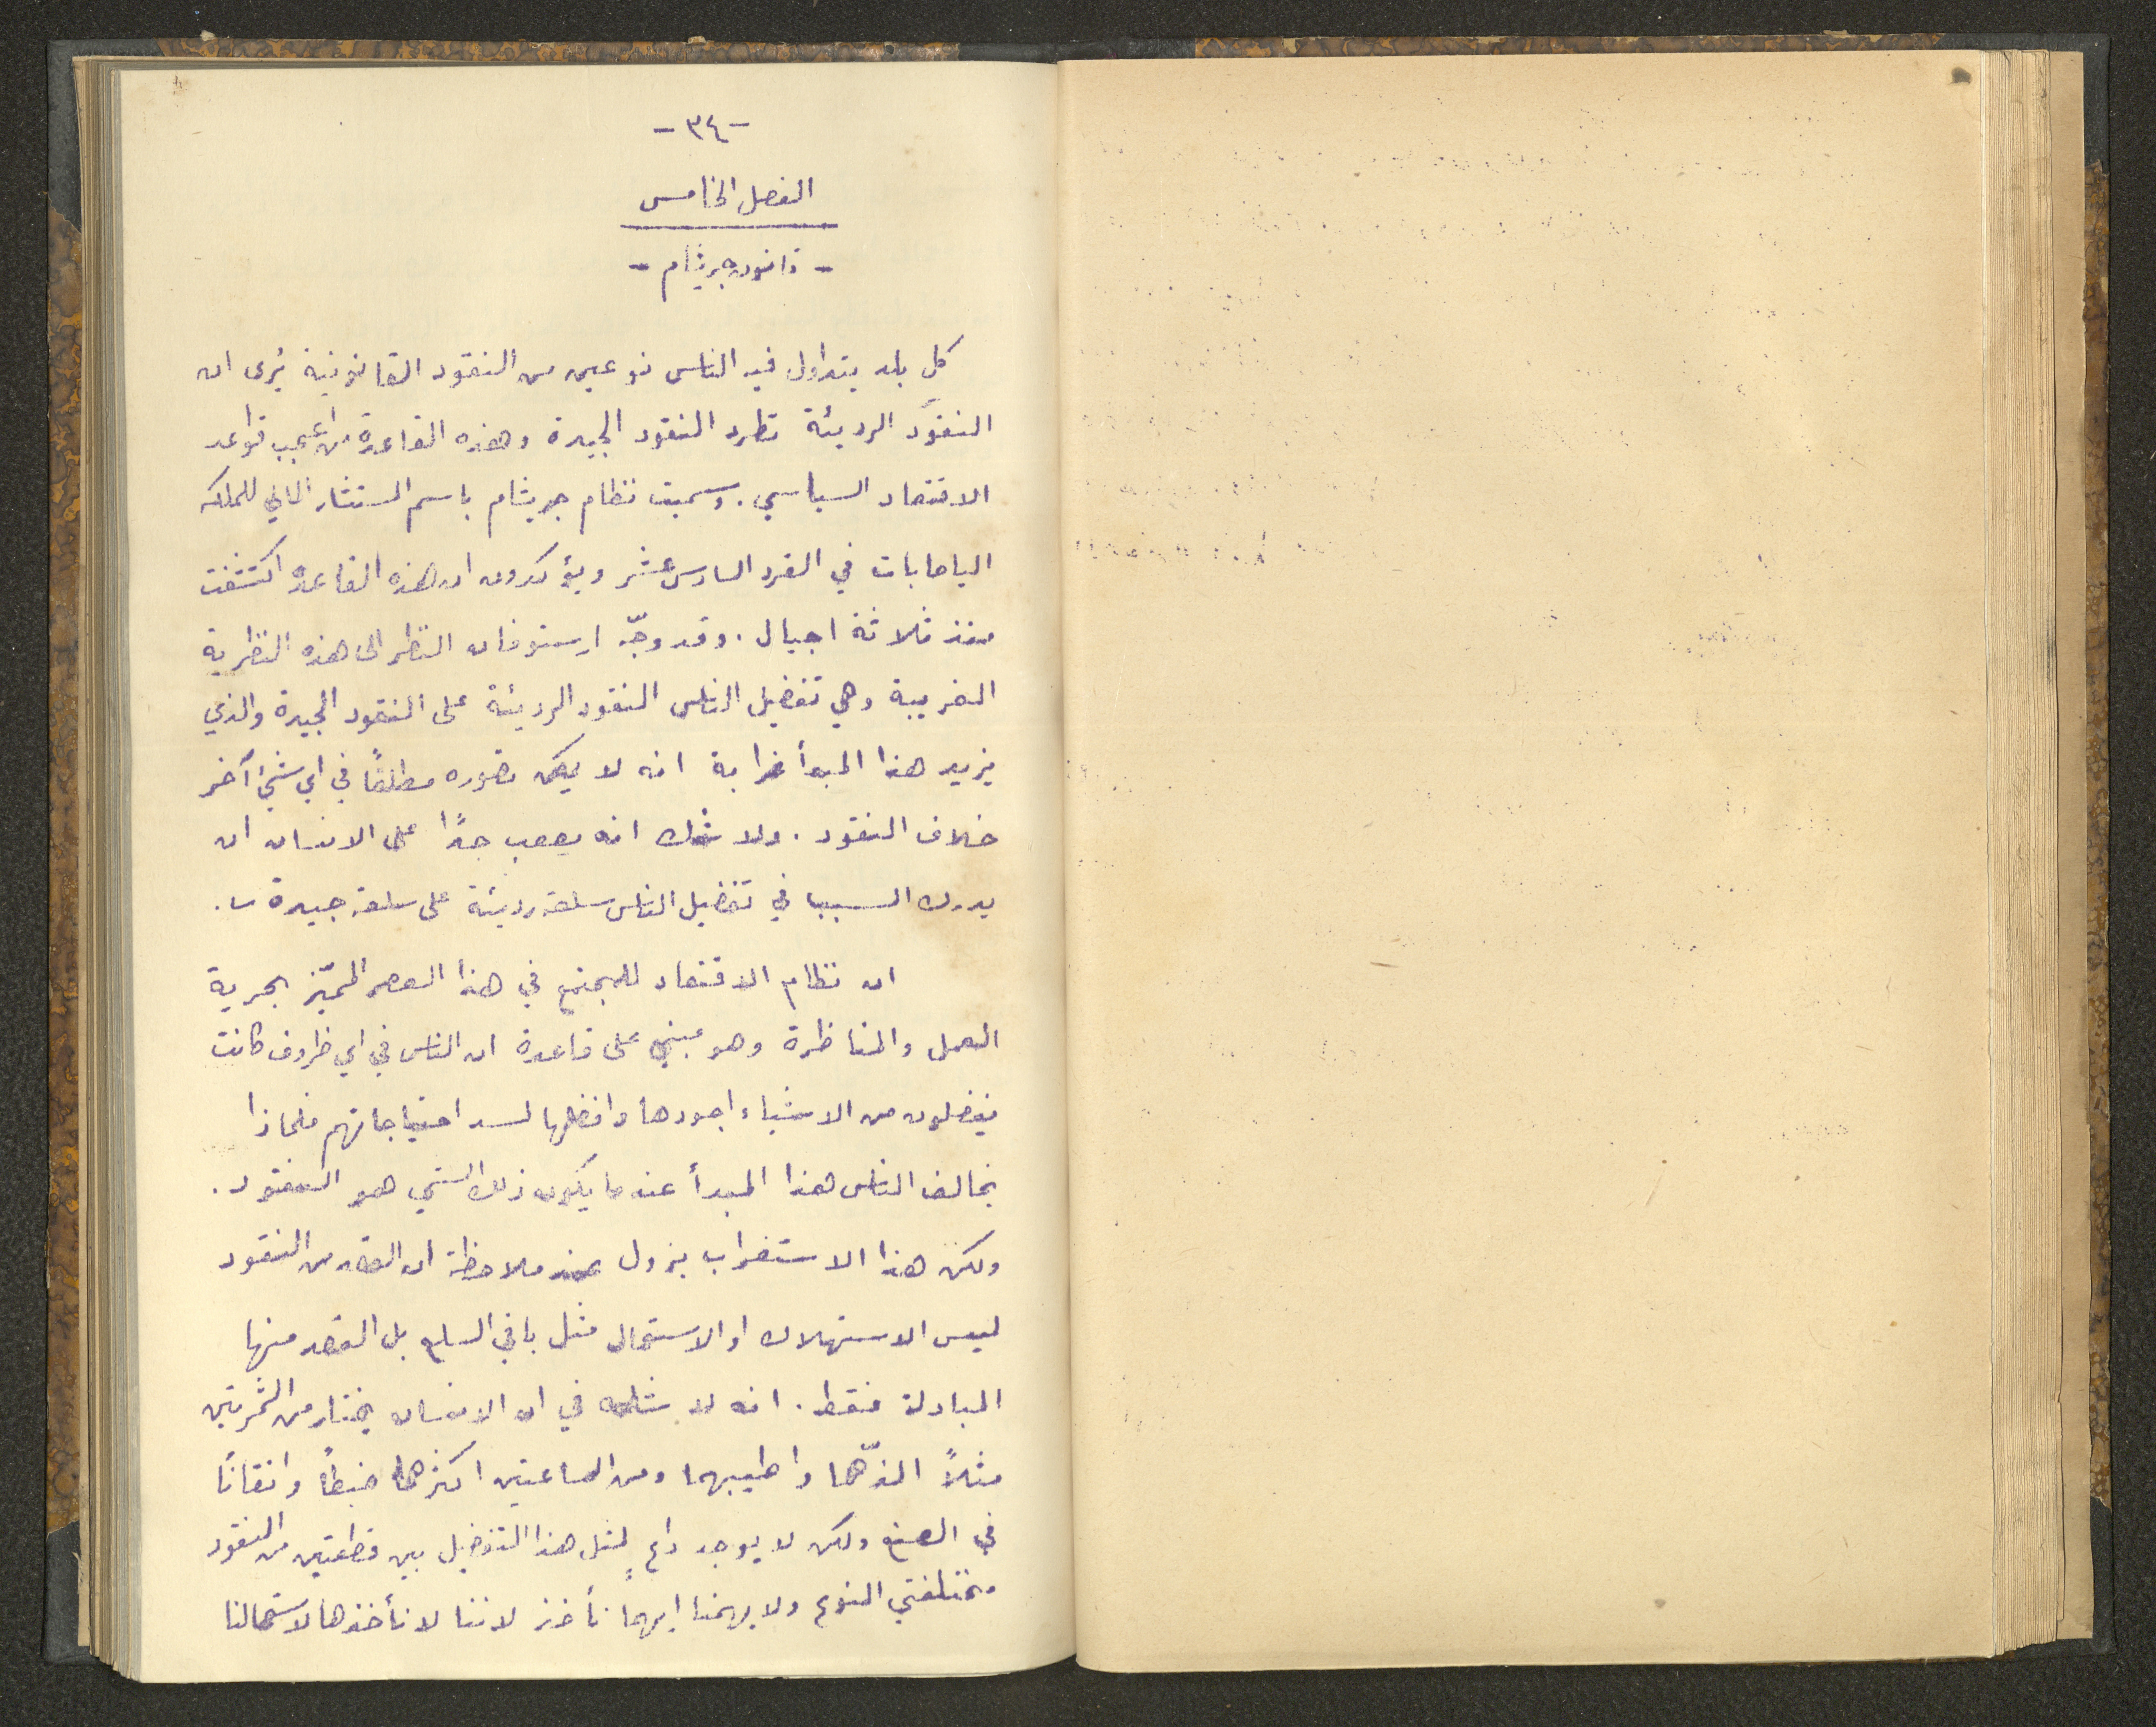 -٣٤-
الفصل الخامس
- قانون جريشام -
كل بلد يتداول فيه الناس نوعين من النقود القانونية يُرى ان
النقود الرديئة تطرد النقود الجيدة وهذه القاعدة من اعجب قواعد
الاقتصاد السياسي . وسميت نظام جريشام باسم المستشار المالي للملكه
اليصابات في القرن السادس عشر ويؤكدون ان هذه القاعدة اكتشفت
منذ ثلاثة اجيال . وقد وجّه ارستوفان النظر الى هذه النظرية
الغريبة وهي تفضيل الناس النقود الرديئة على النقود الجيدة والذي
يزيد هذا المبدأ غرابة انه لا يمكن تصوره مطلقاً في اي شيء آخر
خلاف النقود . ولا شك انه يصعب جداً على الانسان ان
يدرك السبب في تفضيل الناس سلعة رديئة على سلعة جيدة .
ان نظام الاقتصاد للمجتمع في هذا العصر المميّز بحرية
العمل والمناظرة وهو مبني على قاعدة ان الناس في اي ظروف كانت
يفضلون من الاشياء اجودها وافضلها لسد احتياجاتهم فلماذا
يخالف الناس هذا المبدأ عندما يكون ذلك الشي هو النقود .
ولكن هذا الاستغراب يزول عند ملاحظة ان القصد من النقود
ليس الاستهلاك او الاستعمال مثل باقي السلع بل القصد منها
المبادلة فقط . انه لا شك في ان الانسان يختار من الثمرتين
مثلاً الذّهما واطيبهما ومن الساعتين اكثرهما ضبطاً واتقاناً
في الصنع ولكن لا يوجد داعٍ لمثل هذا التفضيل بين قطعتين من النقود
مختلفتي النوع ولا يهمنا ايهما نأخذ لاننا لا نأخذها لاستعمالنا